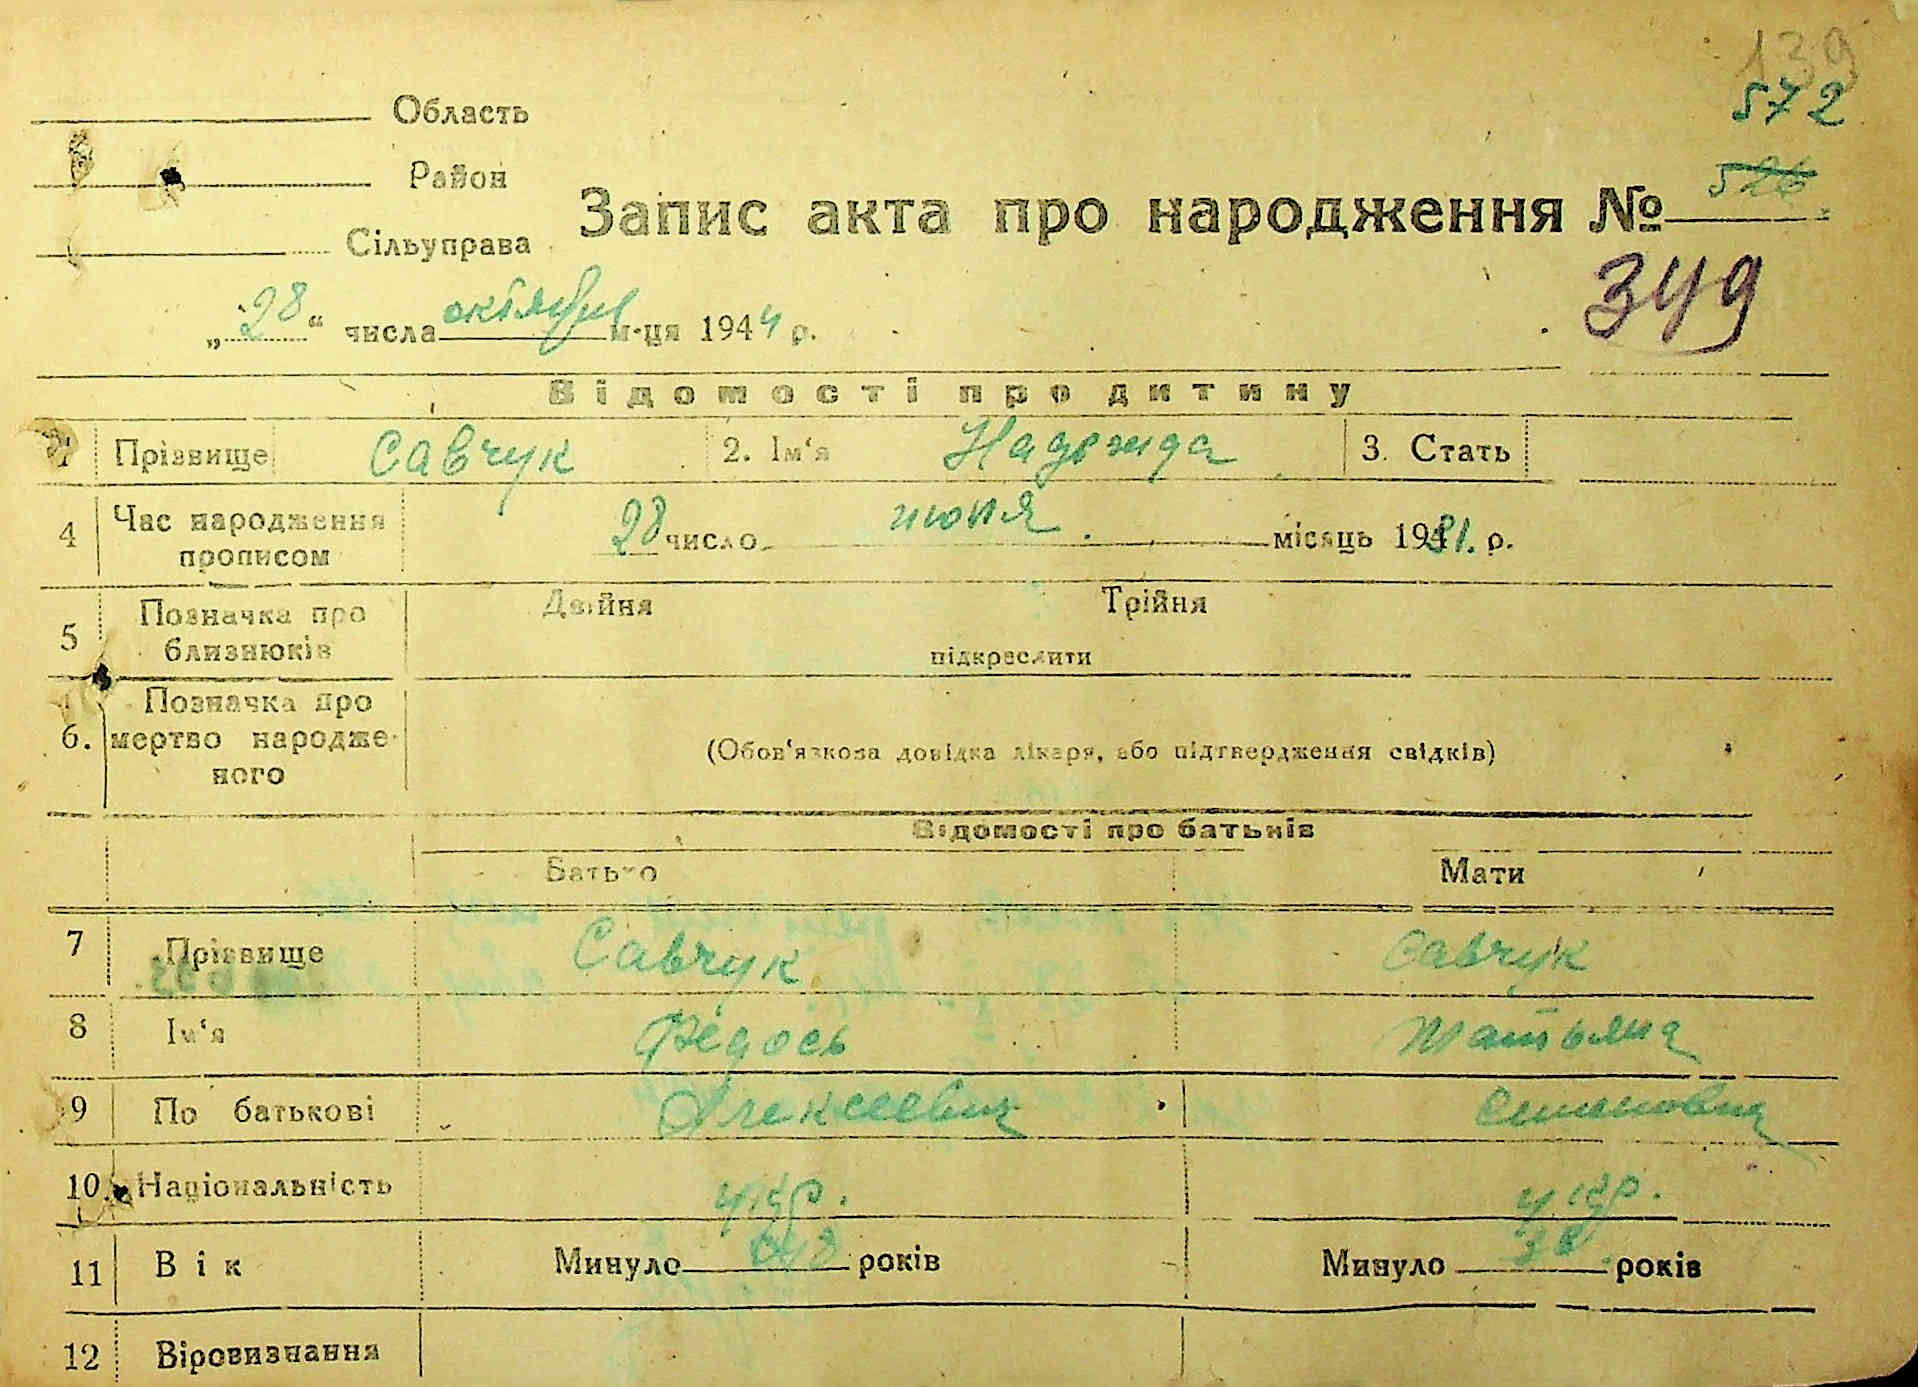 139
572
Область
Район
526
Запис акта про народження №
Сільуправа
349
„28“ числа октября м-ця 1944 р.
Відомості про дитину
1 Прізвище Савчук 2. Ім‘я Надежида 3. Стать
4 Час народження прописом 28 число июня місяць 1931. р.
5 Позначка про близнюків Двійня Трійня
підкреслити
6. Позначка про мертво народженого (Обов‘язкова довідка лікаря, або підтвердження свідків)
Відомості про батьків
Батько Мати
7 Прізвище Савчук Савчук
8 Ім‘я Федось Татьяна
9 По батькові Алексеевич Семеновна
10. Національність укр. укр.
11 Вік Минуло 48 років Минуло 38 років
12 Віровизнання